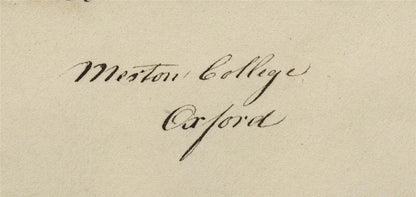 Merton College
Oxford